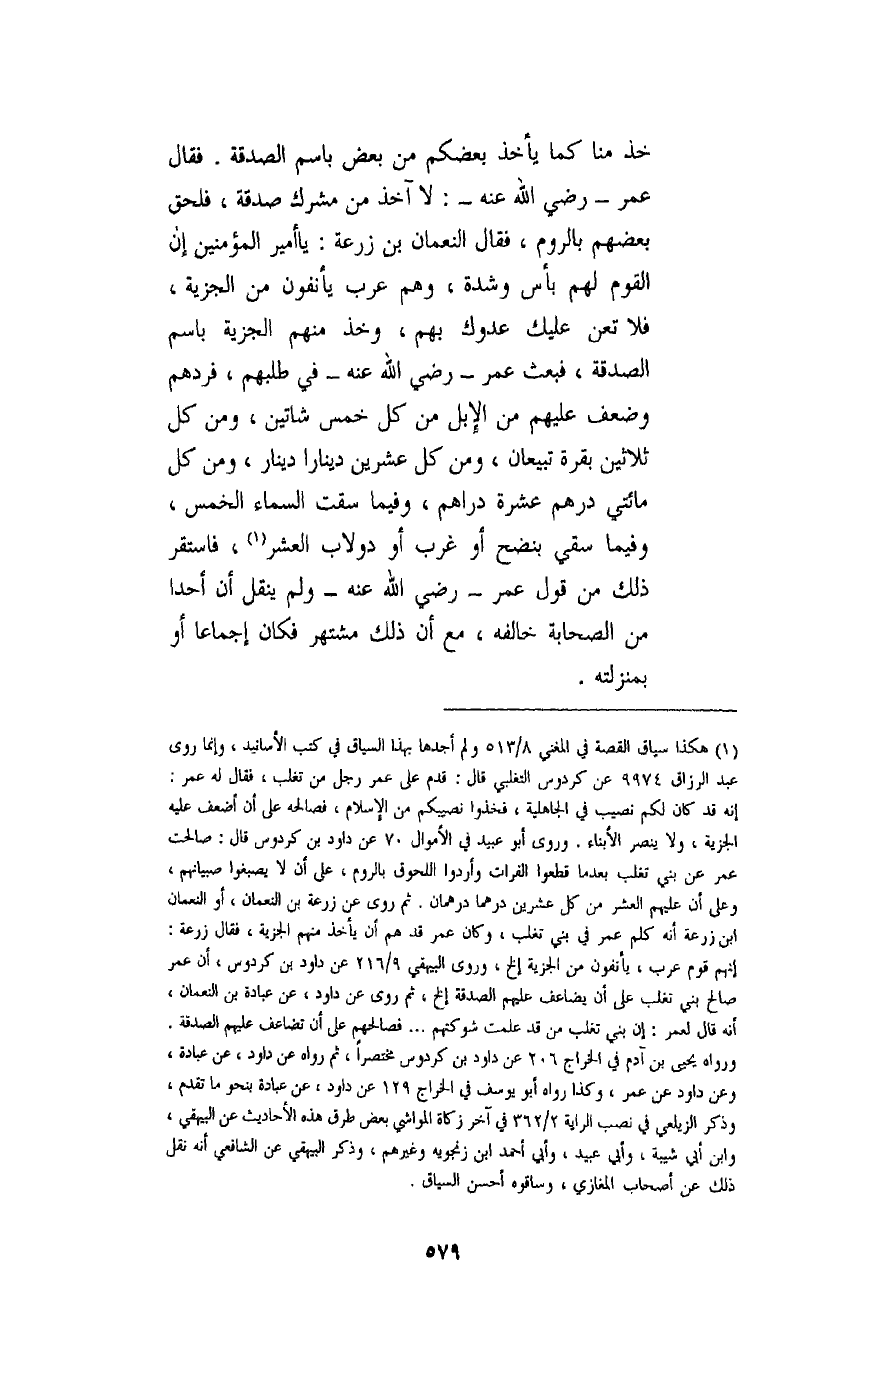 خذ منا كما يأخذ بعضكم من بعض باسم الصدقة . فقال
عمر – رضي الله عنه – : لا آخذ من مشرك صدقة ، فلحق
بعضهم بالروم ، فقال النعمان بن زرعة : ياأمير المؤمنين إن
القوم لهم بأس وشدة ، وهم عرب يأنفون من الجزية ،
فلا تعن عليك عدوك بهم ، وخذ منهم الجزية باسم
الصدقة ، فبعث عمر – رضي الله عنه – في طلبهم ، فردهم
وضعف عليهم من الإبل من كل خمس شاتين ، ومن كل
ثلاثين بقرة تبيعان ، ومن كل عشرين دينارا دينار ، ومن كل
مائتي درهم عشرة دراهم ، وفيما سقت السماء الخمس ،
وفيما سقي بنضح أو غرب أو دولاب العشر(١) ، فاستقر
ذلك من قول عمر – رضي الله عنه – ولم ينقل أن أحدا
من الصحابة خالفه ، مع أن ذلك مشتهر فكان إجماعا أو
بمنزلته .
(١) هكذا سياق القصة في المغني ٥١٣/٨ ولم أجدها بهذا السياق في كتب الأسانيد ، وإنما روى
عبد الرزاق ٩٩٧٤ عن كردوس التغلبي قال : قدم على عمر رجل من تغلب ، فقال له عمر :
إنه قد كان لكم نصيب في الجاهلية ، فخذوا نصيبكم من الإسلام ، فصالحه على أن أضعف عليه
الجزية ، ولا ينصر الأبناء . وروى أبو عبيد في الأموال ٧٠ عن داود بن كردوس قال : صالحت
عمر عن بني تغلب بعدما قطعوا الفرات وأردوا اللحوق بالروم ، على أن لا يصبغوا صبيانهم ،
وعلى أن عليهم العشر من كل عشرين درهما درهمان . ثم روى عن زرعة بن النعمان ، أو النعمان
ابن زرعة أنه كلم عمر في بني تغلب ، وكان عمر قد هم أن يأخذ منهم الجزية ، فقال زرعة :
إنهم قوم عرب ، يأنفون من الجزية إلخ ، وروى البيهقي ٢١٦/٩ عن داود بن كردوس ، أن عمر
صالح بني تغلب على أن يضاعف عليهم الصدقة إلخ ، ثم روى عن داود ، عن عبادة بن النعمان ،
أنه قال لعمر : إن بني تغلب من قد علمت شوكتهم ... فصالحهم على أن تضاعف عليهم الصدقة .
ورواه يحيى بن آدم في الخراج ٢٠٦ عن داود بن كردوس مختصراً ، ثم رواه عن داود ، عن عبادة ،
وعن داود عن عمر ، وكذا رواه أبو يوسف في الخراج ١٢٩ عن داود ، عن عبادة بنحو ما تقدم ،
وذكر الزيلعي في نصب الراية ٣٦٢/٢ في آخر زكاة المواشي بعض طرق هذه الأحاديث عن البيهقي ،
وابن أبي شيبة ، وأبي عبيد ، وأبي أحمد ابن زنجويه وغيرهم ، وذكر البيهقي عن الشافعي أنه نقل
ذلك عن أصحاب المغازي ، وساقوه أحسن السياق .
٥٧٩